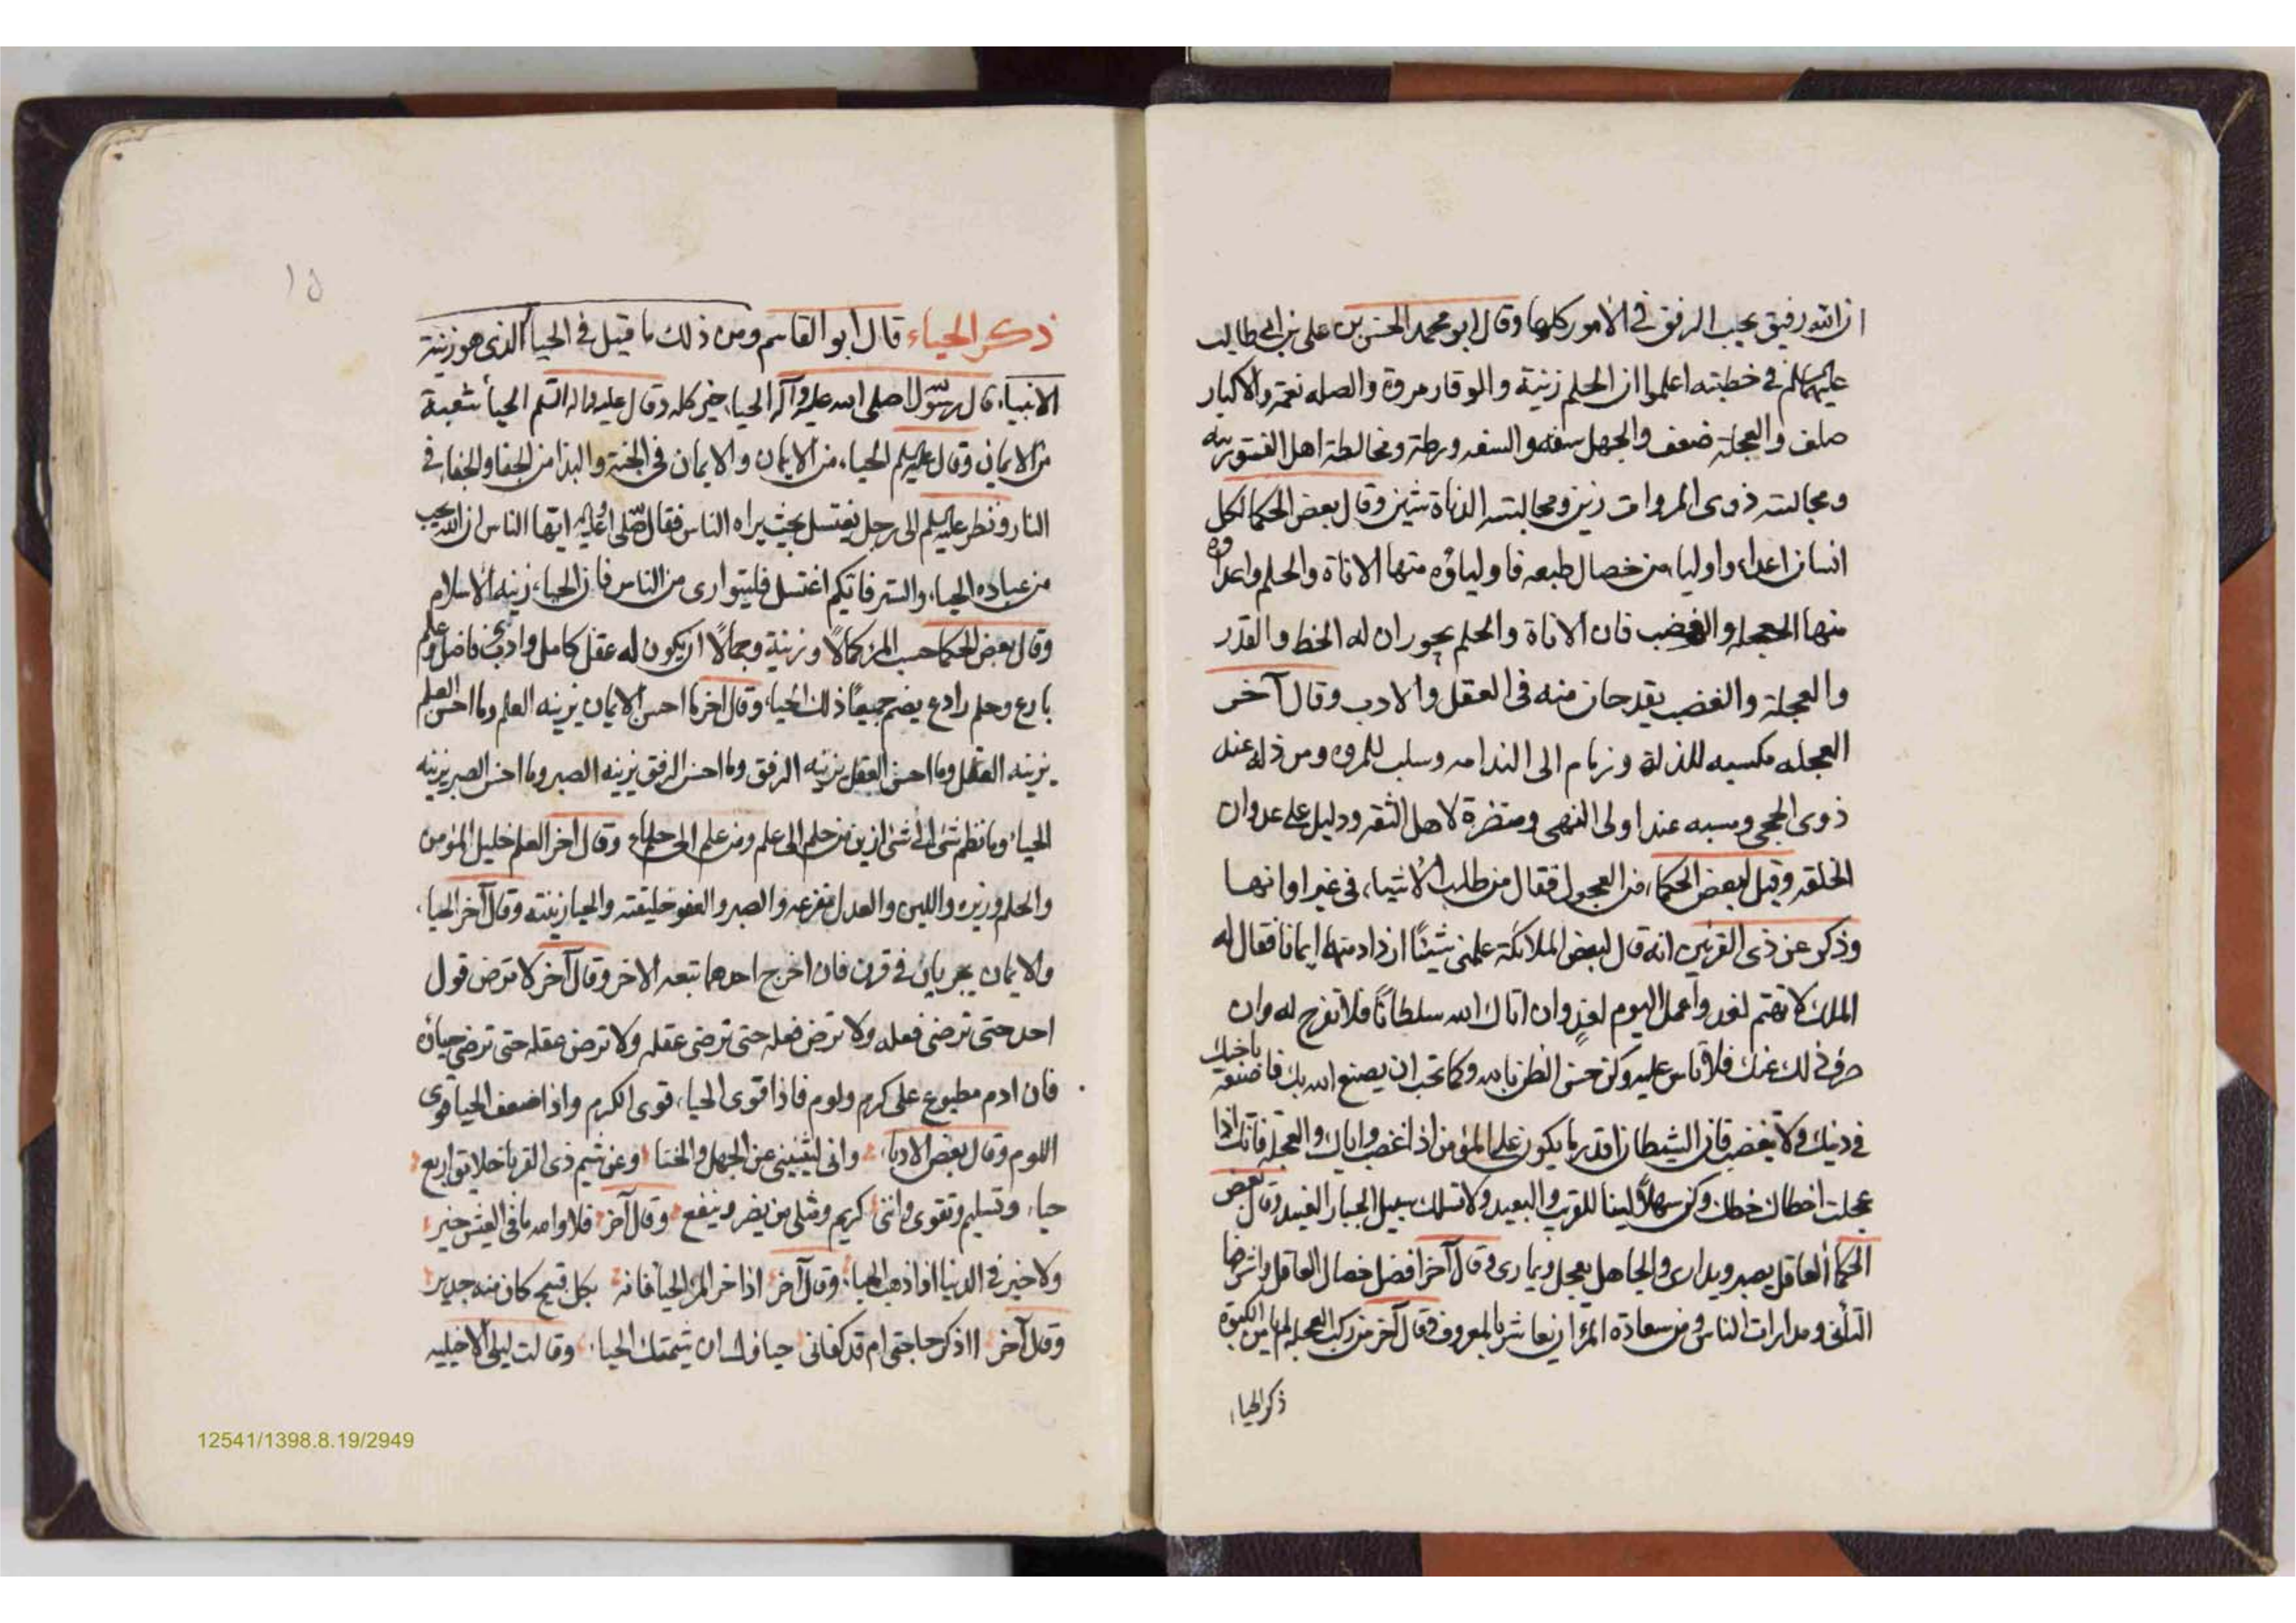 ان الله رفيق يحب الرفق في الأمور كلها وقال ابو محمد الحسن بن علي بن ابي طالب
عليهما السلم في خطبته اعلموا ان الحلم زينة والوقار مروة والصله نعمة والاكبار
صلف والعجلة ضعف والجهل سفه والسفه ورطة ومخالطة اهل الفسق ريبه
ومجالسة ذوى المروات زين ومجالسة الدناة شين وقال بعض الحكما لكل
انسان اعداء واولياء من خصال طبعه فاولياؤه منها الاناة والحلم واعداوه
منها العجله والغضب فان الاناة والحلم يحوران له الحظ والقدر
والعجلة والغضب يقدحان منه فى العقل والادب وقال آخر
العجله مكسبه للذلة وزمام الى الندامه وسلب للمروه ومن ذله عند
ذوى الحجى وسبه عند اولى النهى ومنفرة لاهل الثقه ودليل على عدوان
الخلقه وقيل لبعض الحكماء من العجول فقال من طلب الاشياء في غير اوانها
وذكر عن ذى القرنين انه قال لبعض الملائكة علمني شيئا ازداد منه ايمانا فقال له
الملك لا تهتم لغد واعمل اليوم لغدٍ وان اتاك الله سلطانًا فلا تفرح له وان
صرف ذلك عنك فلا تاس عليه وكن حسن الظن بالله وكما تحب ان يصنع الله بك فاصنعه باخيك
في دنيك ولا تغضب فان الشيطان اقدر ما يكون على المؤمن اذا غضب واياك والعجلة فانك اذا
عجلت اخطات حظك وكن سهلًا لينا للقريب والبعيد ولا تسلك سبيل الجبار العنيد وقال بعض
الحكما العاقل يصبر ويدارى والجاهل يعجل ويمارى وقال آخر افضل خصال العاقل واشرفها
التأنى ومدارات الناس ومن سعادة المرء ان يعاشر بالمعروف وقال آخر من ركب العجله لم يامن الكبوة
ذكر الحياء
ذكر الحياء قال ابو القاسم ومن ذلك ما قيل في الحياء الذى هو زينة
الانبياء قال رسول الله صلى الله عليه وآله الحياء خير كله وقال عليه واله السلم الحياء شعبة
من الايمان وقال عليه السلم الحياء من الايمان والايمان في الجنة والبذا من الجفا والجفاء في
النار ونظر عليه السلم الى رجل يغتسل بحيث يراه الناس فقال صلى الله عليه ايها الناس ان الله يحب
من عباده الحياء والستر فايكم اغتسل فليتوارى من الناس فان الحياء زينه الاسلام
وقال بعض الحكما حسب المرء كمالًا وزينة وجمالًا ان يكون له عقل كامل وادب فاضل وعلم
بارع وحلم رادع يضم جميعًا ذلك الحياء وقال اخر ما احسن الايمان يزينه العلم وما احسن العلم
يزينه العقل وما احسن العقل يزينه الرفق وما احسن الرفق يزينه الصبر وما احسن الصبر يزينه
الحياء وما نظم شئ الى شئ ازين من حلم الى علم ومن علم الى حلم وقال اخر العلم خليل المؤمن
والحلم وزيره واللين والعدل والصبر والعفو خليقته والحيا زينته وقال آخر الحياء
والايمان يجريان في قرن فان اخرج احدهما تبعه الاخر وقال آخر لا ترض قول
احد حتى ترضى فعله ولا ترض فعله حتى ترضى عقله ولا ترض عقله حتى ترضى حياؤه
فان ادم مطبوع على كرم ولوم فاذا قوى الحياء قوى الكرم واذا ضعف الحيا قوى
اللوم وقال بعض الادباء وانى ليثنيني عن الجهل والخنا وعن شيم ذى القربا خلايق اربع
حياء وتسليم وتقوى وانني كريم ومثلى من يضر وينفع وقال آخر فلا والله ما في العيش خير
ولا خير في الدنيا اذا ذهب الحياء وقال آخر اذا المرء الحياء فانه بكل قبيح كان منه جدير
وقال آخر ااذكر حاجتى ام قد كفانى حياؤك ان شيمتك الحياء وقالت ليلى الاخيليه
12541/1398.8.19/2949